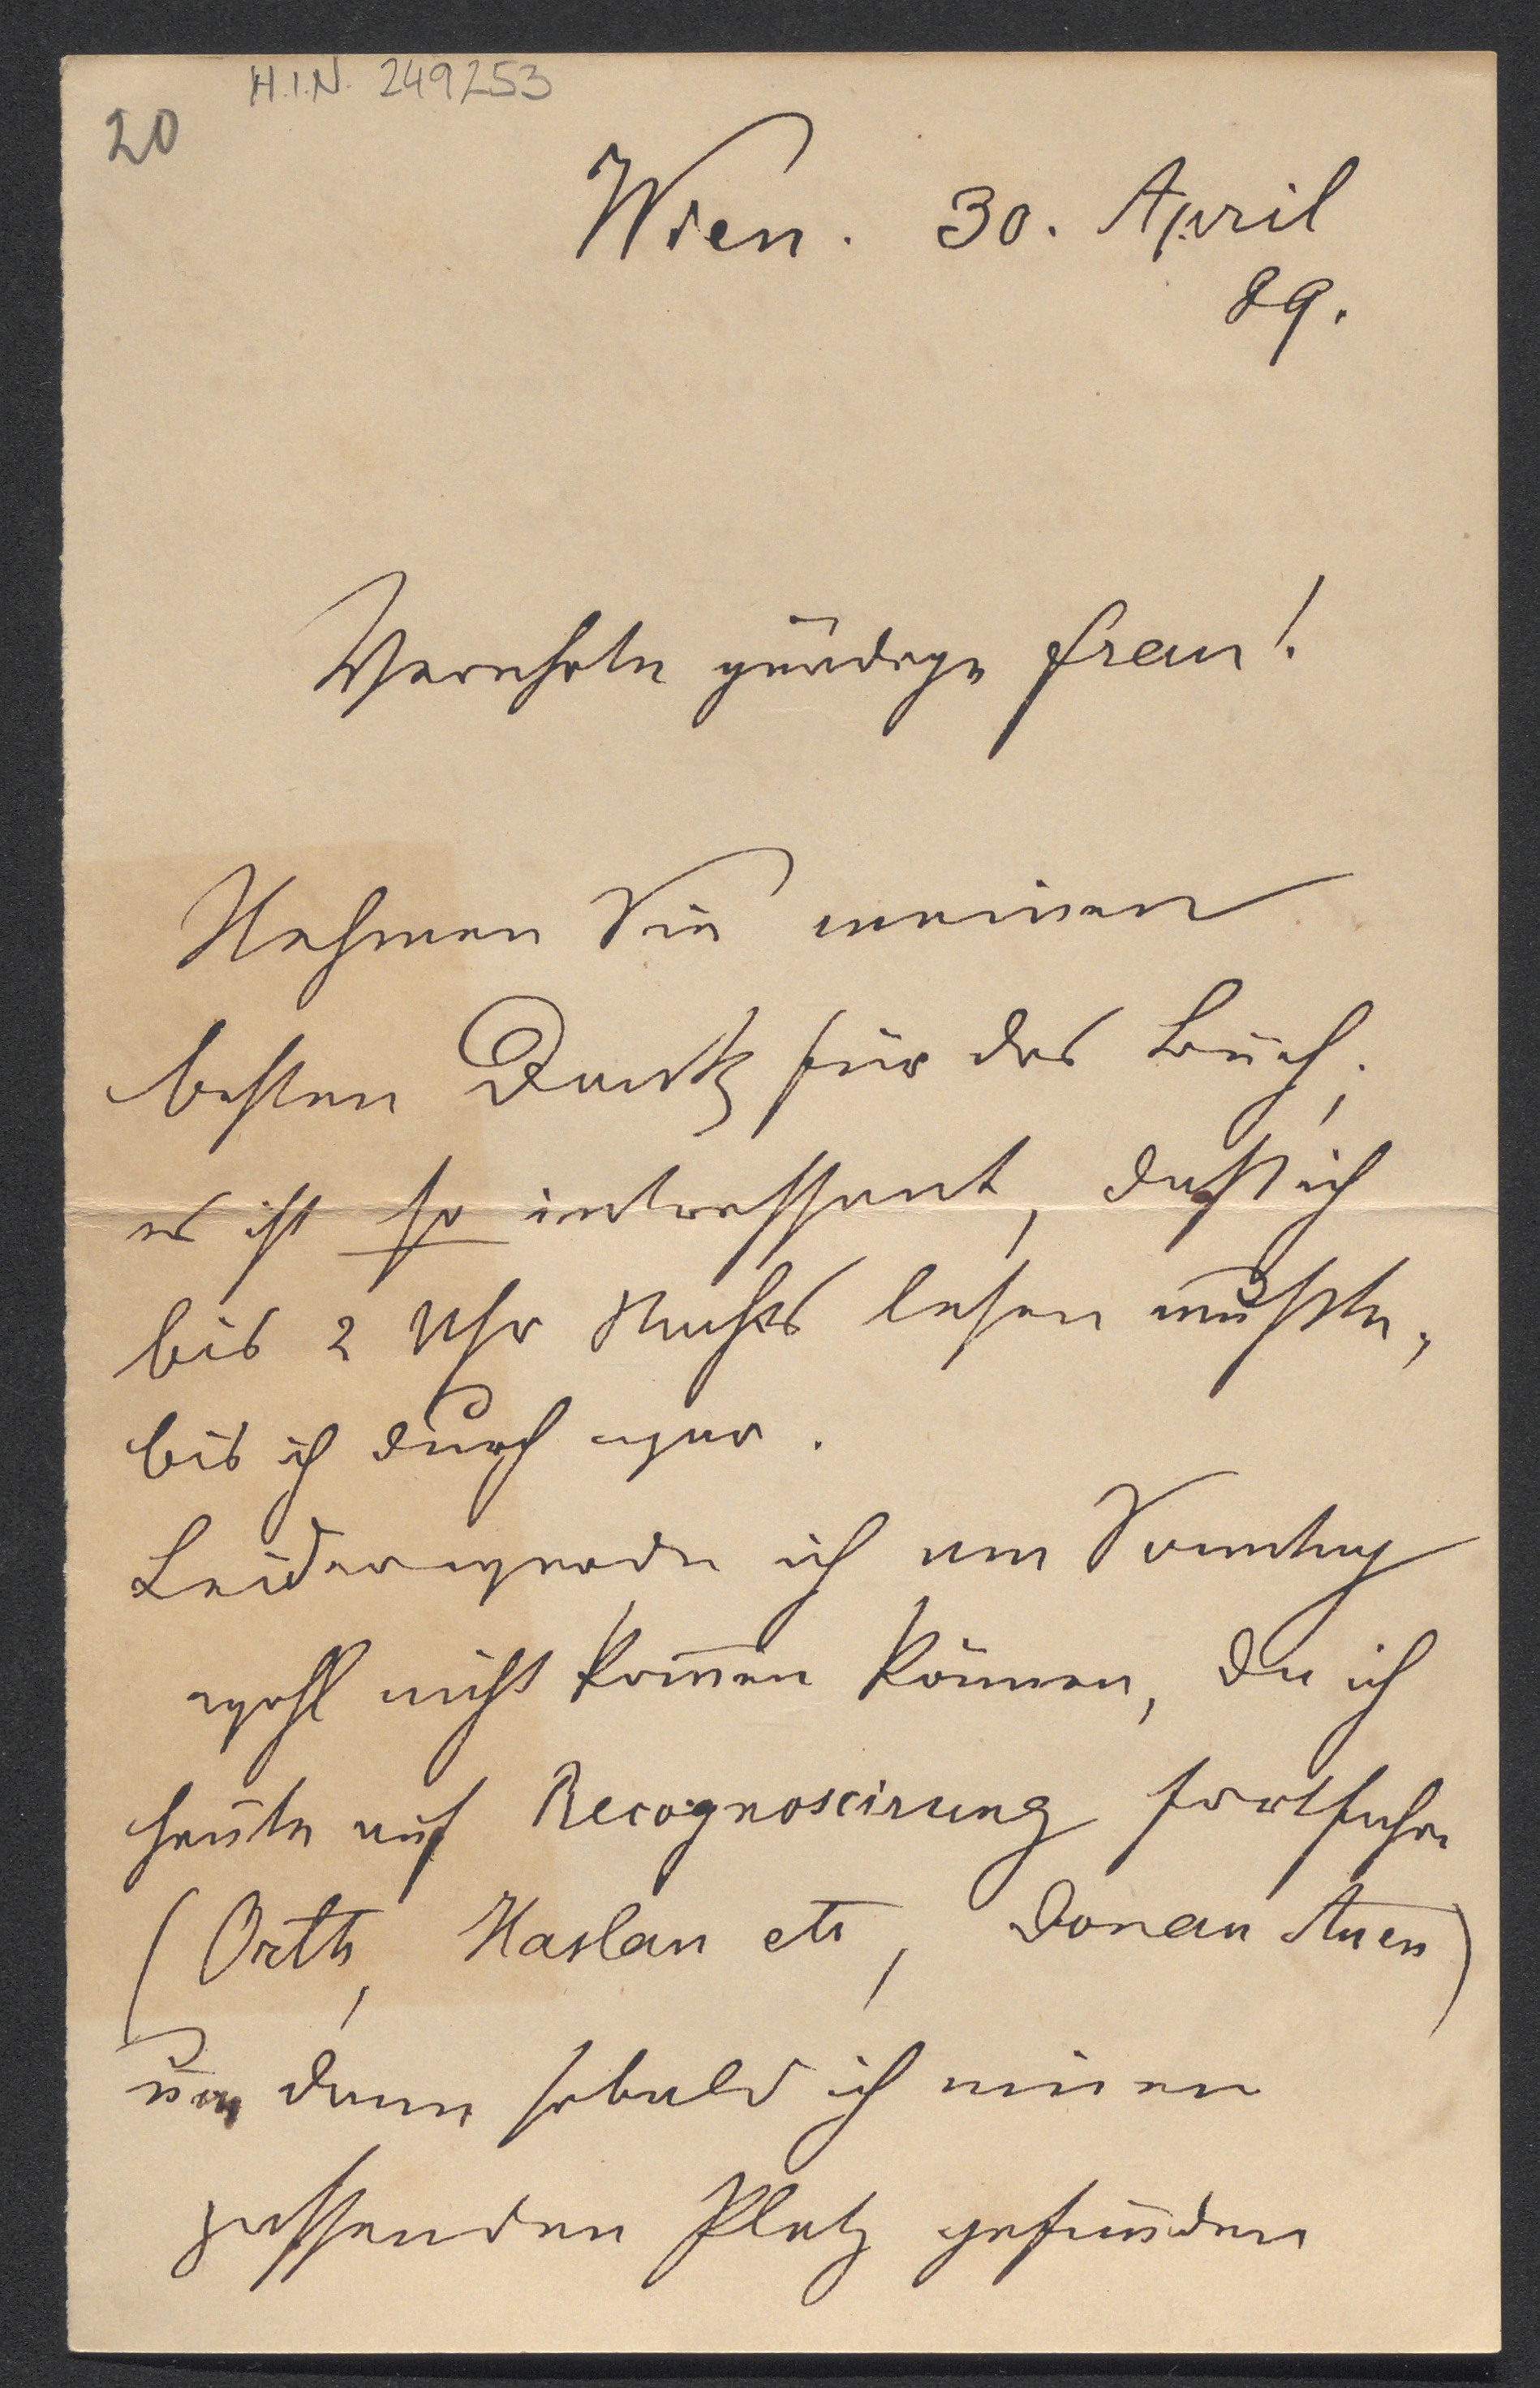 H.I.N. 249253
20
Wien. 30. April
89.
Verehrte gnädige Frau!
Nehmen Sie meinen
besten Dank für das Buch;
es ist so intressant, daß ich
bis 2 Uhr Nachts lesen mußte,
bis ich durch war.
Leider werde ich am Sonntag
wohl nicht kom̅en können, da ich
heute auf Recognoscirung fortfahre
(Orth, Haslau etc, Donau Auen)
u dann sobald ich einen
passenden Platz gefunden